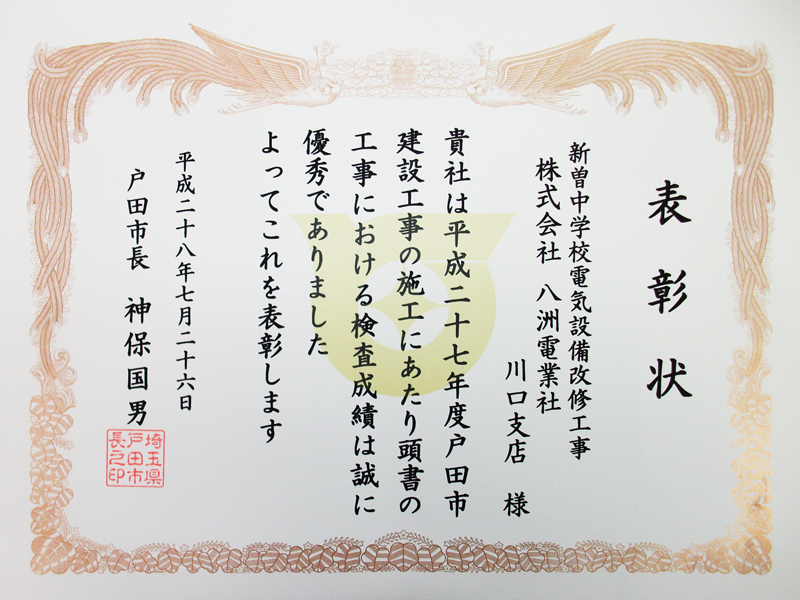 表彰状
新曽中学校電気設備改修工事
株式会社 八洲電業社
川口支店 様
貴社は平成二十七年度戸田市
建設工事の施工にあたり頭書の
工事における検査成績は誠に
優秀でありました
よってこれを表彰します
平成二十八年七月二十六日
戸田市長 神保国男
埼玉県
戸田市
長之印